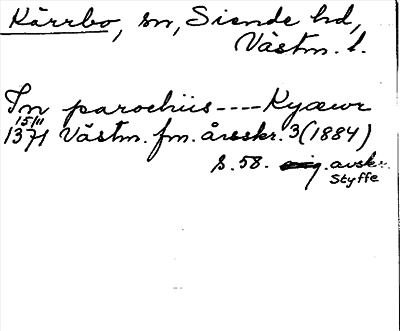 Kärrbo, sn, Siende hd,
Västm. l.
In parochiis ---- Kyæwr
15/11
1371 Västm. fm. årsskr. 3 (1884)
s. 58. avskr.
Styffe